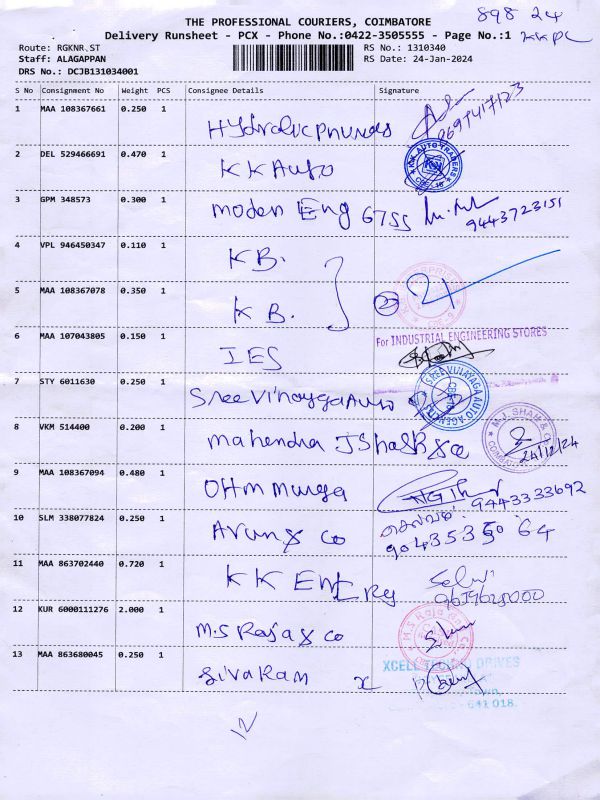 THE PROFESSIONAL COURIERS, COIMBATORE
898 24
Delivery Runsheet - PCX - Phone No.:0422-3505555 - Page No.:1
KKPL
Route: RGKNR.ST
RS No.: 1310340
Staff: ALAGAPPAN
RS Date: 24-Jan-2024
DRS No.: DCJB131034001
S No Consignment No Weight PCS Consignee Details Signature
1 MAA 108367661 0.250 1 Hydraulic
2 DEL 529466691 0.470 1 KK Auto K.K. AUTO TRADERS
3 GPM 348573 0.300 1 Moden Eng 6755 9443723151
4 VPL 946450347 0.110 1 KB.
5 MAA 108367078 0.350 1 KB. 2
6 MAA 107043805 0.150 1 IES For INDUSTRIAL ENGINEERING STORES
7 STY 6011630 0.250 1 Sree Vinayga Auto SREE VINAYAGA AUTO AGENCIES
8 VKM 514400 0.200 1 Mahendra J Shah & Co M.J. SHAH & CO COIMBATORE 24/12/24
9 MAA 108367094 0.480 1 OHM Muruga 9443333692
10 SLM 338077824 0.250 1 Arun & Co செல்வம் 9043535064
11 MAA 863702440 0.720 1 KK Ent Selvi
12 KUR 6000111276 2.000 1 M.S Raja & Co
13 MAA 863680045 0.250 1 Sivaram x XCELL TECHNO DRIVES
641 018.